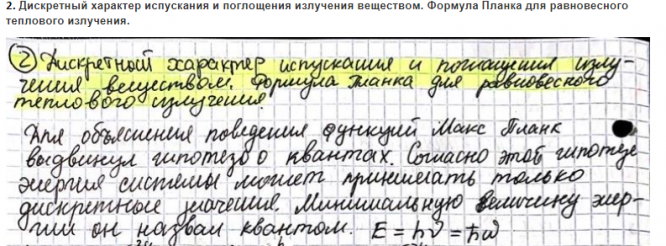 2. Дискретный характер испускания и поглощения излучения веществом. Формула Планка для равновесного
теплового излучения.
2 Дискретный характер испускания и поглощения излу-
чения веществом. Формула Планка для равновесного
теплового излучения.
Для объяснения поведения функций Макс Планк
выдвинул гипотезу о квантах. Согласно этой гипотезе
энергия системы может принимать только
дискретные значения. Минимальную величину энер-
гии он назвал квантом. E = hν = ħω